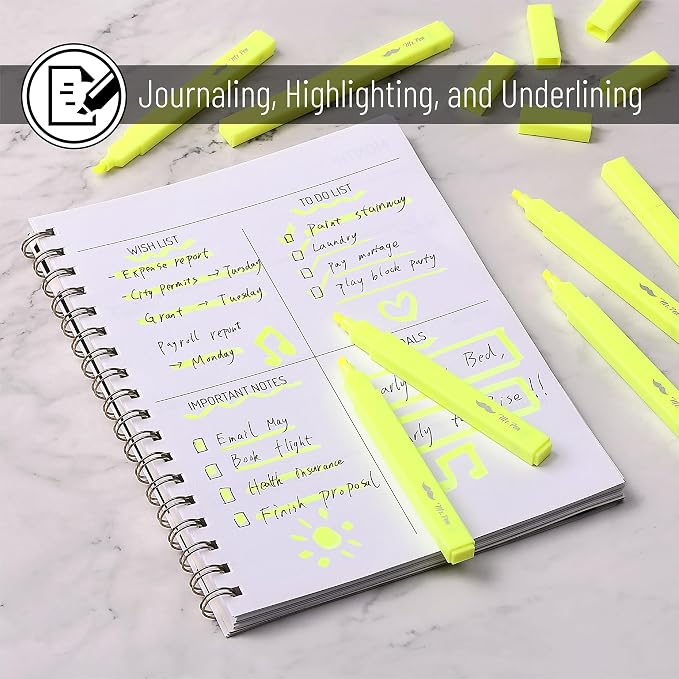 Journaling, Highlighting, and Underlining
Mr. Pen
Mr. Pen
WISH LIST
- Expense report
- City permits → Tuesday
Grant → Tuesday
Payroll report
→ Monday
TO DO LIST
Paint stairway
Laundry
Pay mortage
Play block party
IMPORTANT NOTES
Email May
Book flight
Health insurance
Finish proposal
OALS
arly Bed,
arly to ise!!
Mr. Pen
Mr. Pen
Mr. Pen
Mr. Pen